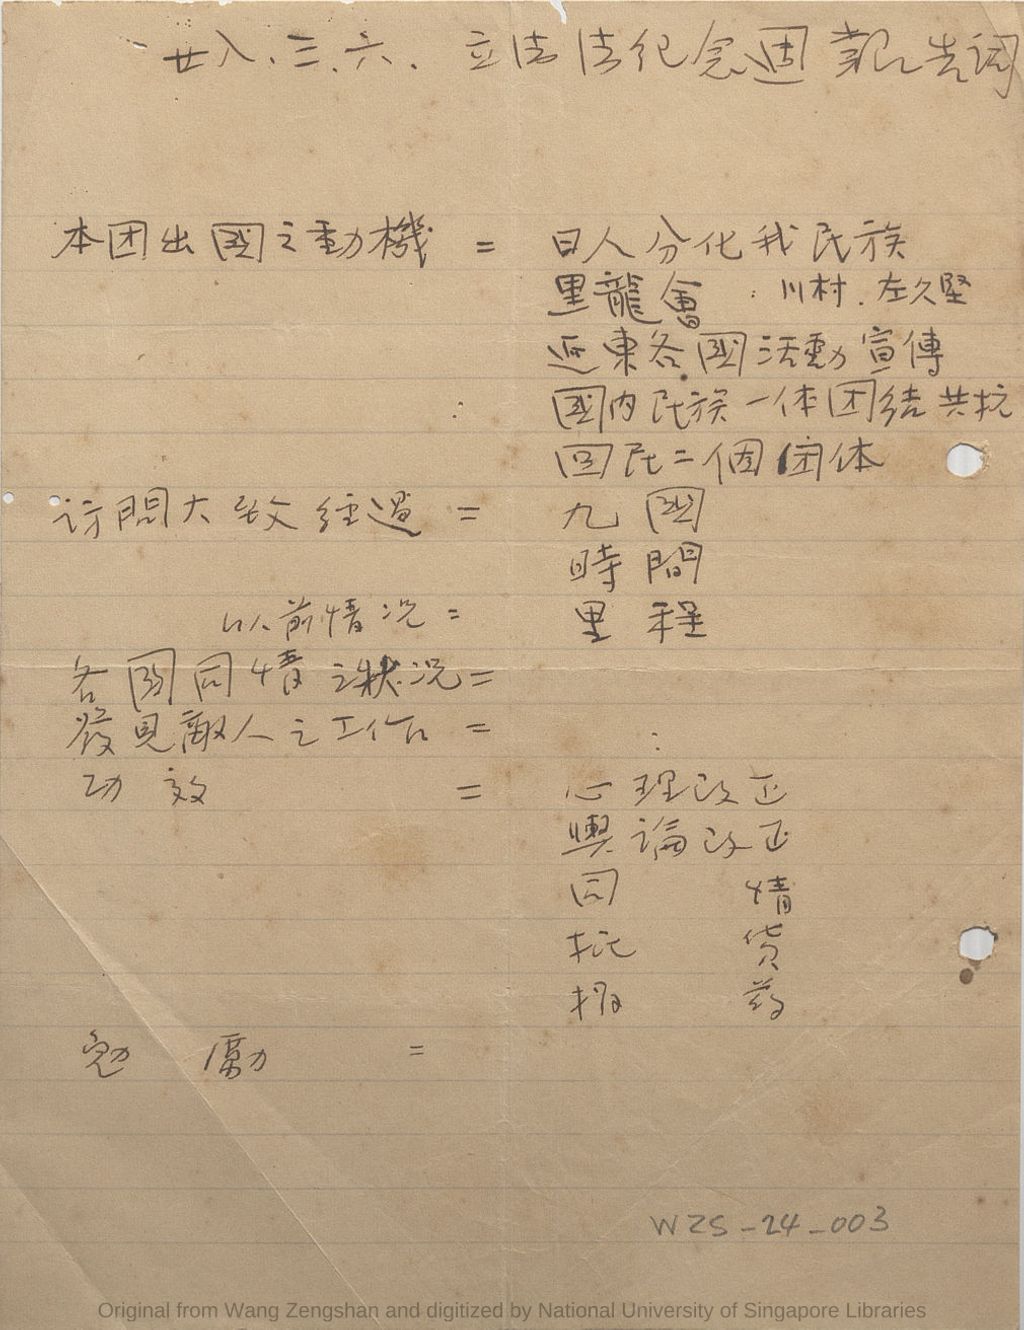 廿八、三、六、立法法纪念週報告词
本团出國之動機 = 日人分化我民族
黑龍會:川村.左久堅
近東各國活動宣傳
國内民族一体团结共抗
回民二個团体
访問大致经過 = 九國
時間
以前情况 = 里程
各國同情之狀况 =
發見敵人之工作 =
功效 = 心理改正
輿論改正
同情
抵货
捐药
勉勵 =
WZS-24-003
Original from Wang Zengshan and digitized by National University of Singapore Libraries